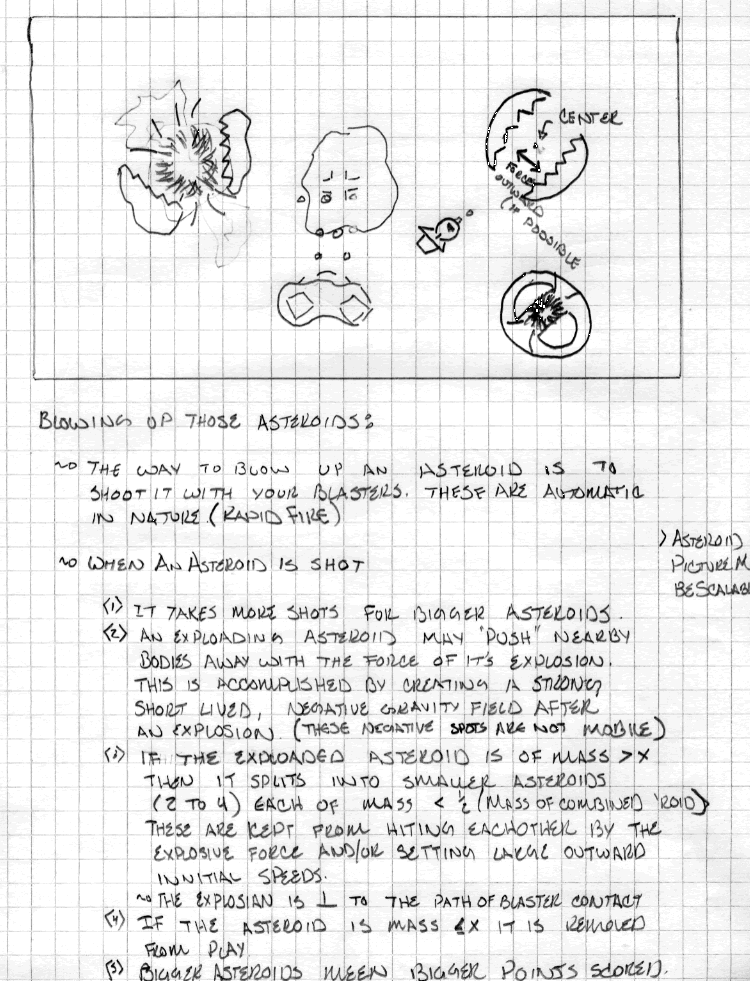 CENTER
FORCES
OUTWARD
(IF POSSIBLE
BLOWING UP THOSE ASTEROIDS:
~ THE WAY TO BLOW UP AN ASTEROID IS TO
SHOOT IT WITH YOUR BLASTERS. THESE ARE AUTOMATIC
IN NATURE. (RAPID FIRE)
> ASTEROID
PICTURE M
BE SCALAB
~ WHEN AN ASTEROID IS SHOT
(1) IT TAKES MORE SHOTS FOR BIGGER ASTEROIDS.
(2) AN EXPLOADING ASTEROID MAY "PUSH" NEARBY
BODIES AWAY WITH THE FORCE OF IT'S EXPLOSION.
THIS IS ACCOMPLISHED BY CREATING A STRONG
SHORT LIVED, NEGATIVE GRAVITY FIELD AFTER
AN EXPLOSION. (THESE NEGATIVE SPOTS ARE NOT MOBILE)
(3) IF THE EXPLOADED ASTEROID IS OF MASS > X
THEN IT SPLITS INTO SMALLER ASTEROIDS
(2 TO 4) EACH OF MASS < ½ (MASS OF COMBINED 'ROID)
THESE ARE KEPT FROM HITING EACHOTHER BY THE
EXPLOSIVE FORCE AND/OR SETTING LARGE OUTWARD
INNITIAL SPEEDS.
~ THE EXPLOSIAN IS ⊥ TO THE PATH OF BLASTER CONTACT
(4) IF THE ASTEROID IS MASS ≤ X IT IS REMOVED
FROM PLAY
(5) BIGGER ASTEROIDS MEEN BIGGER POINTS SCORED.